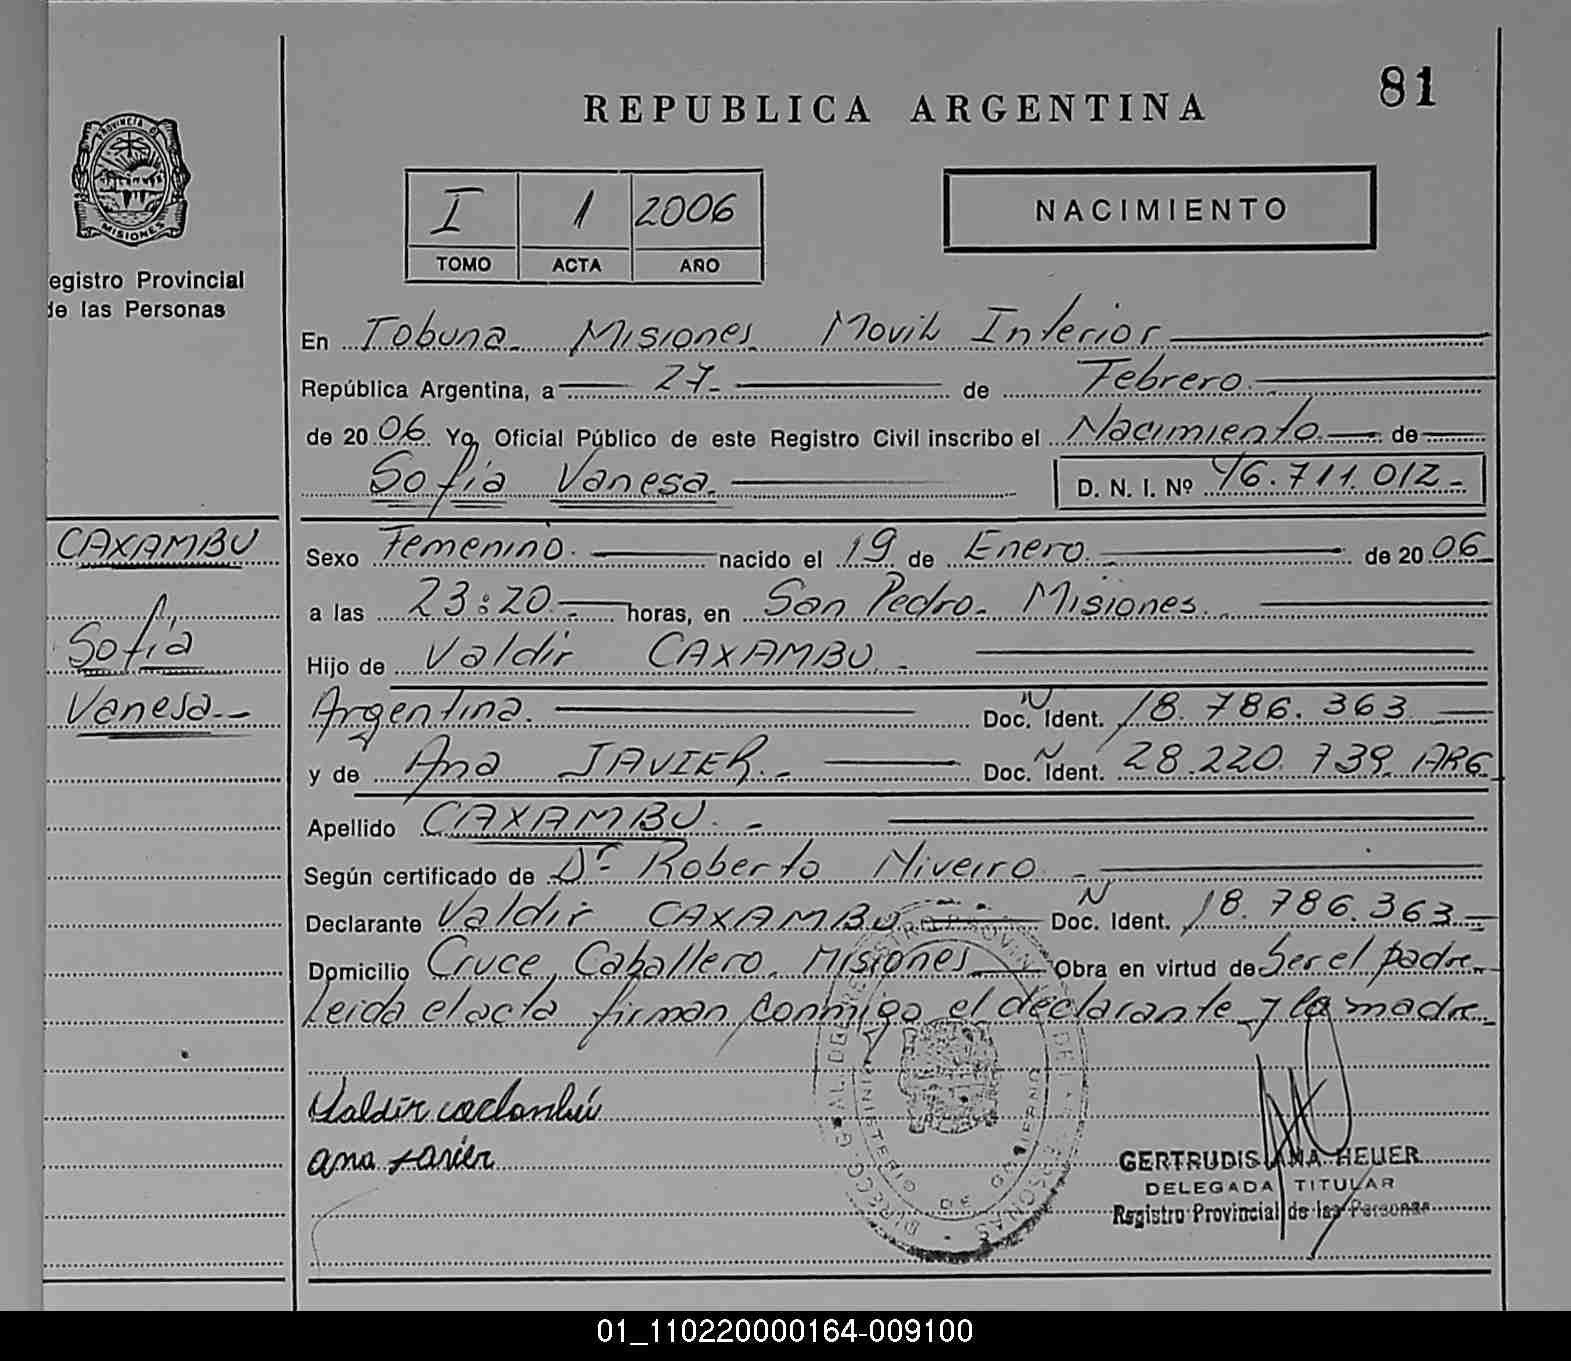 81
REPUBLICA ARGENTINA
PROVINCIA DE
MISIONES
I 1 2006
TOMO ACTA AÑO
NACIMIENTO
egistro Provincial
de las Personas
En Tobuna Misiones Movil Interior
República Argentina, a 27 de Febrero
de 2006 Yo, Oficial Público de este Registro Civil inscribo el Nacimiento de
Sofía Vanesa. D. N. I. Nº 46.711.012-
CAXAMBU
Sofía
Vanesa
Sexo Femenino. nacido el 19 de Enero de 2006
a las 23:20 horas, en San Pedro. Misiones
Hijo de Valdir CAXAMBU
Argentina. Doc. Ident. N 18.786.363
y de Ana JAVIER. Doc. Ident. N 28.220.739 ARG
Apellido CAXAMBU.
Según certificado de Dr Roberto Niveiro
Declarante Valdir CAXAMBU Doc. Ident. N 18.786.363
Domicilio Cruce Caballero. Misiones Obra en virtud de Ser el padre
Leida el acta firman conmigo el declarante y la madre
Valdir
ana
GERTRUDIS ANA HEUER
DELEGADA TITULAR
Registro Provincial de las Personas
MINISTERIO DE GOBIERNO
01_110220000164-009100